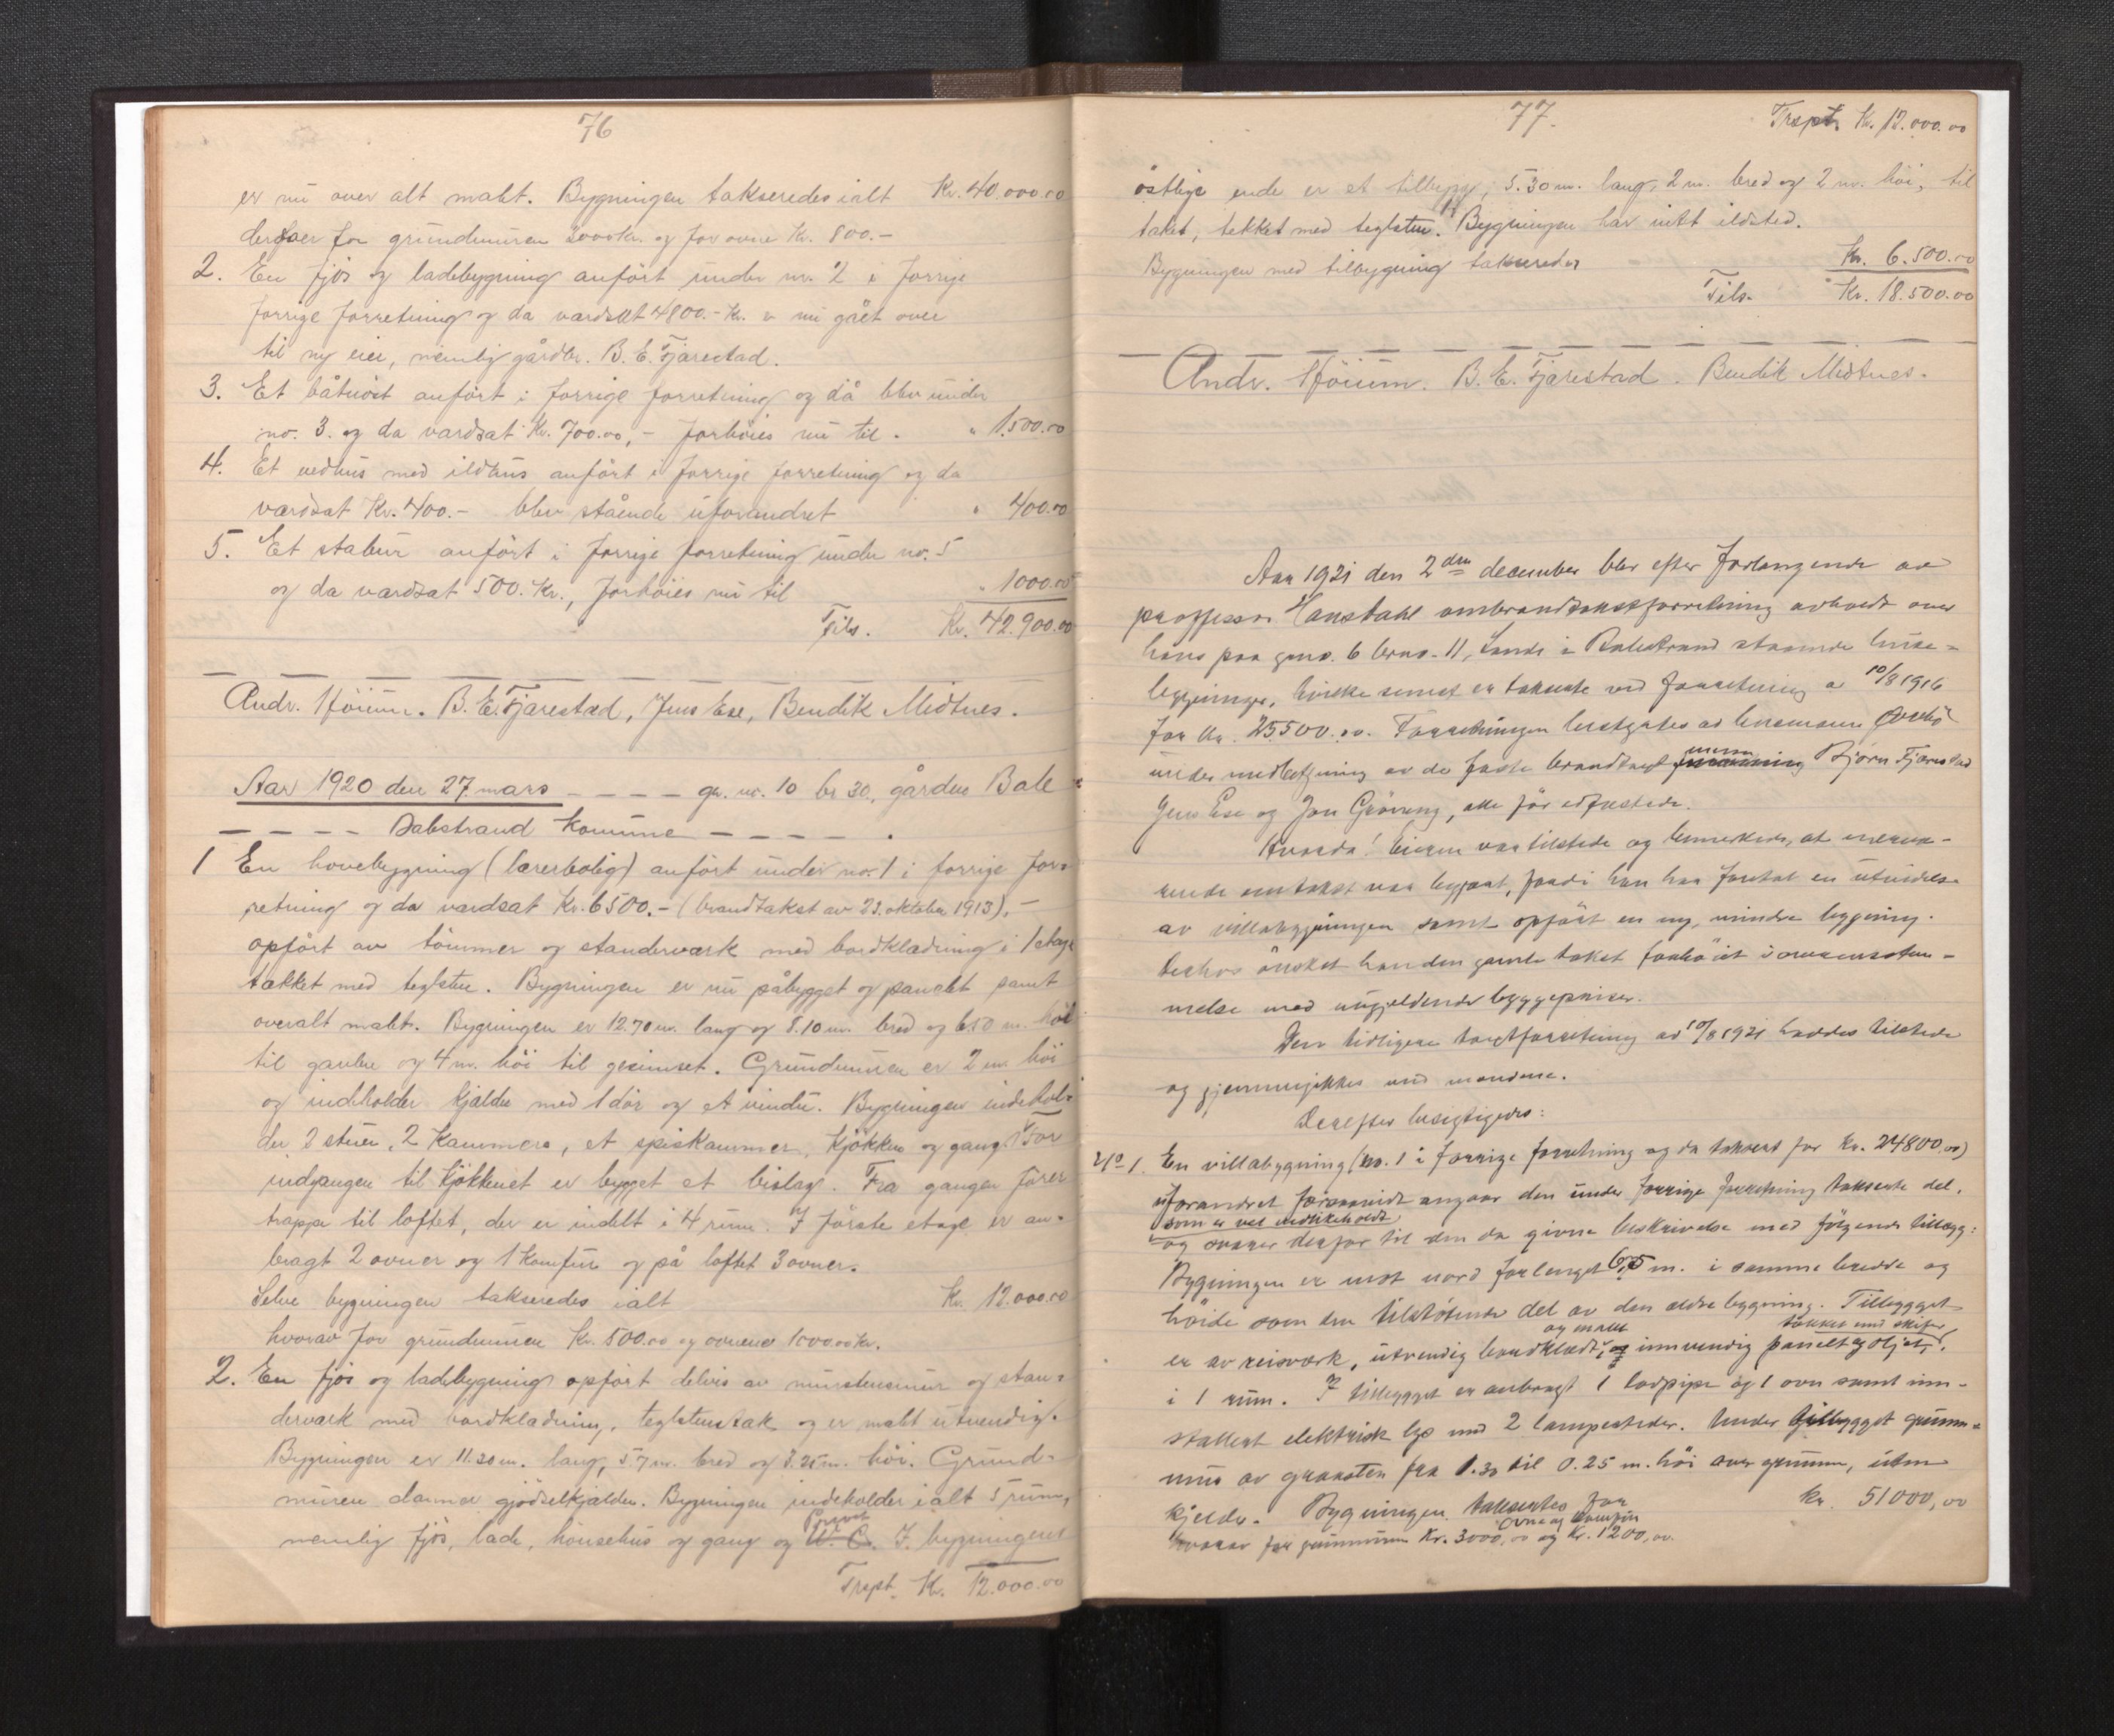 76
er nu over alt malt. Bygningen takseredes ialt Kr. 40.000.00
derav for grundmuren 3000 kr. og for ovne Kr. 800.-
2. En fjös og ladebygning anfört under nr. 2 i forrige
forrige forretning og da værdsat 4800.- Kr. er nu gået over
til ny eier, nemlig gårdbr. B. E. Fjærestad.
3. Et båtnöst anfört i forrige forretning og då blev under
no. 3. og da værdsat Kr. 700.00,- forhöies nu til . " 1.500.00
4. Et vedhus med ildhus anfört i forrige forretning og da
værdsat Kr. 400.- blev stående uforandret " 400.00
5. Et stabur anfört i forrige forretning under no. 5
og da værdsat 500. Kr., forhöies nu til " 1000.00
Tils. Kr. 42.900.00
Andr. Höium. B. E. Fjærestad, Jens Ese, Bendik Midtnes.
Aar 1920 den 27. mars - - - - gr. nr. 10 br 30, gården Bale
- - - - Balestrand Komune - - - - - .
1 En hovebygning (lærerbolig) anfört under no. 1 i forrige for=
retning og da værdsat Kr. 6500.- (brandtakst av 23. oktober 1913),-
opfört av tömmer og standerværk med bordklædning i 1 etage
tækket med teglsten. Bygningen er nu påbygget og panelt samt
overalt malt. Bygningen er 12.70 m. lang og 8.10 m. bred og 6.50 m. höi
til gavlen og 4 m. höi til gesimset. Grundmuren er 2 m. höi
og indeholder kjælder med 1 dör og et vindu. Bygningen indehol=
der 3 stuer, 2 Kammers, et spiskammer, kjökken og gang. For
indgangen til kjökkenet er bygget et bislag. Fra gangen förer
trappe til loftet, der er indelt i 4 rum. I förste etage er an=
bragt 2 ovner og 1 komfur og på loftet 3 ovner.
Selve bygningen takseredes ialt Kr. 12.000.00
hvorav for grundmuren Kr. 500.00 og ovnene 1000.00 kr.
2. En fjös og ladebygning opfört delvis av murstensmur og stan=
derværk med bordklædning, teglstenstak og er malt utvendig.
Bygningen er 11.20 m. lang, 5.7 m. bred og 3.25 m. höi. Grund=
muren danner gjödselkjælder. Bygningen indeholder ialt 5 rum,
Privet
nemlig fjös, lade, hönsehus og gang og W. C. I bygningens
Trspt. Kr. 12.000.00
77.
Trspt. Kr. 12.000.00
östlige ende er et tilbygg, 5.30 m. lang, 2 m. bred og 2 m. höi, til
taket, tekket med teglsten. Bygningen har intet ildsted.
Bygningen med tilbygning takseredes Kr. 6.500.00
Tils. Kr. 18.500.00
Andr. Höium. B. E. Fjærestad. Bendik Midtnes.
Aar 1921 den 2den december blev efter forlangende av
professor Hans Dahl ombrandtakstforretning avholdt over
hans paa gno. 6 brno. 11, Lunde i Balestrand staaende huse=
bygninger, hvilke senest er takserte ved forretning av 10/8 1916
for kr. 25500.00. Forretningen bestyrtes av lensmann
under medbetjening av de faste brandtakstmenn Björn Fjærestad
Jens Ese og Jon Gröneng, alle för edfestede.
Hvorda! Eieren var tilstede og bemerkede, at nærvæ-
rende omtakst var begjært, fordi han har foretat en utvidelse
av villabygningen samt opfört en ny, mindre bygning.
Deshos önsket han den gamle takst forhöiet i overensstem-
melse med nugjeldende byggepriser.
Den tidligere takstforretning av 10/8 1921 haddes tilstede
og gjennemgikkes med mændene.
Derefter besigtigedes:
No 1. En villabygning (No. 1 i forrige forretning og da taksert for kr. 24800,00)
uforandret forsaavidt angaar den under forrige forretning takserte del,
som er vel vedlikeholdt
og svarer derfor til den da givne beskrivelse med fölgende tillæg:
Bygningen er mot nord forlenget 6,5 m. i samme bredde og
höide som den tilstötende del av den ældre bygning. Tilbygget
og malt tækket med skifer,
er av reisværk, utvendig bordklædt, innvendig panelt og oljet,
i 1 rum. I tilbygget er anbragt 1 lodpipe og 1 ovn samt inn-
stallert elektrisk lys med 2 lampesteder. Under tilbygget grunn-
mur av graasten fra 1.30 til 0.25 m. höi over grunnen, uten
kjelder. Bygningen takseres for kr. 51000,00
ovne og komfur
hvorav for grunnmuren Kr. 3000,00 og Kr. 1200,00.